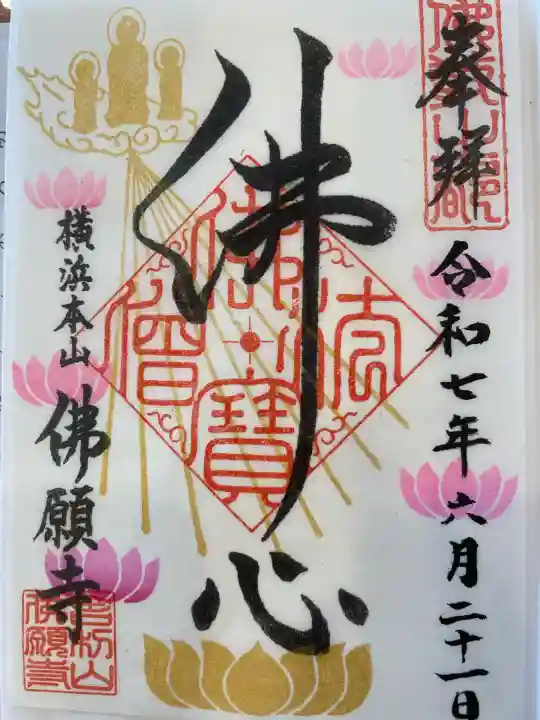 奉拝
令和七年六月二十一日
佛心
佛法僧寳
横浜本山 佛願寺